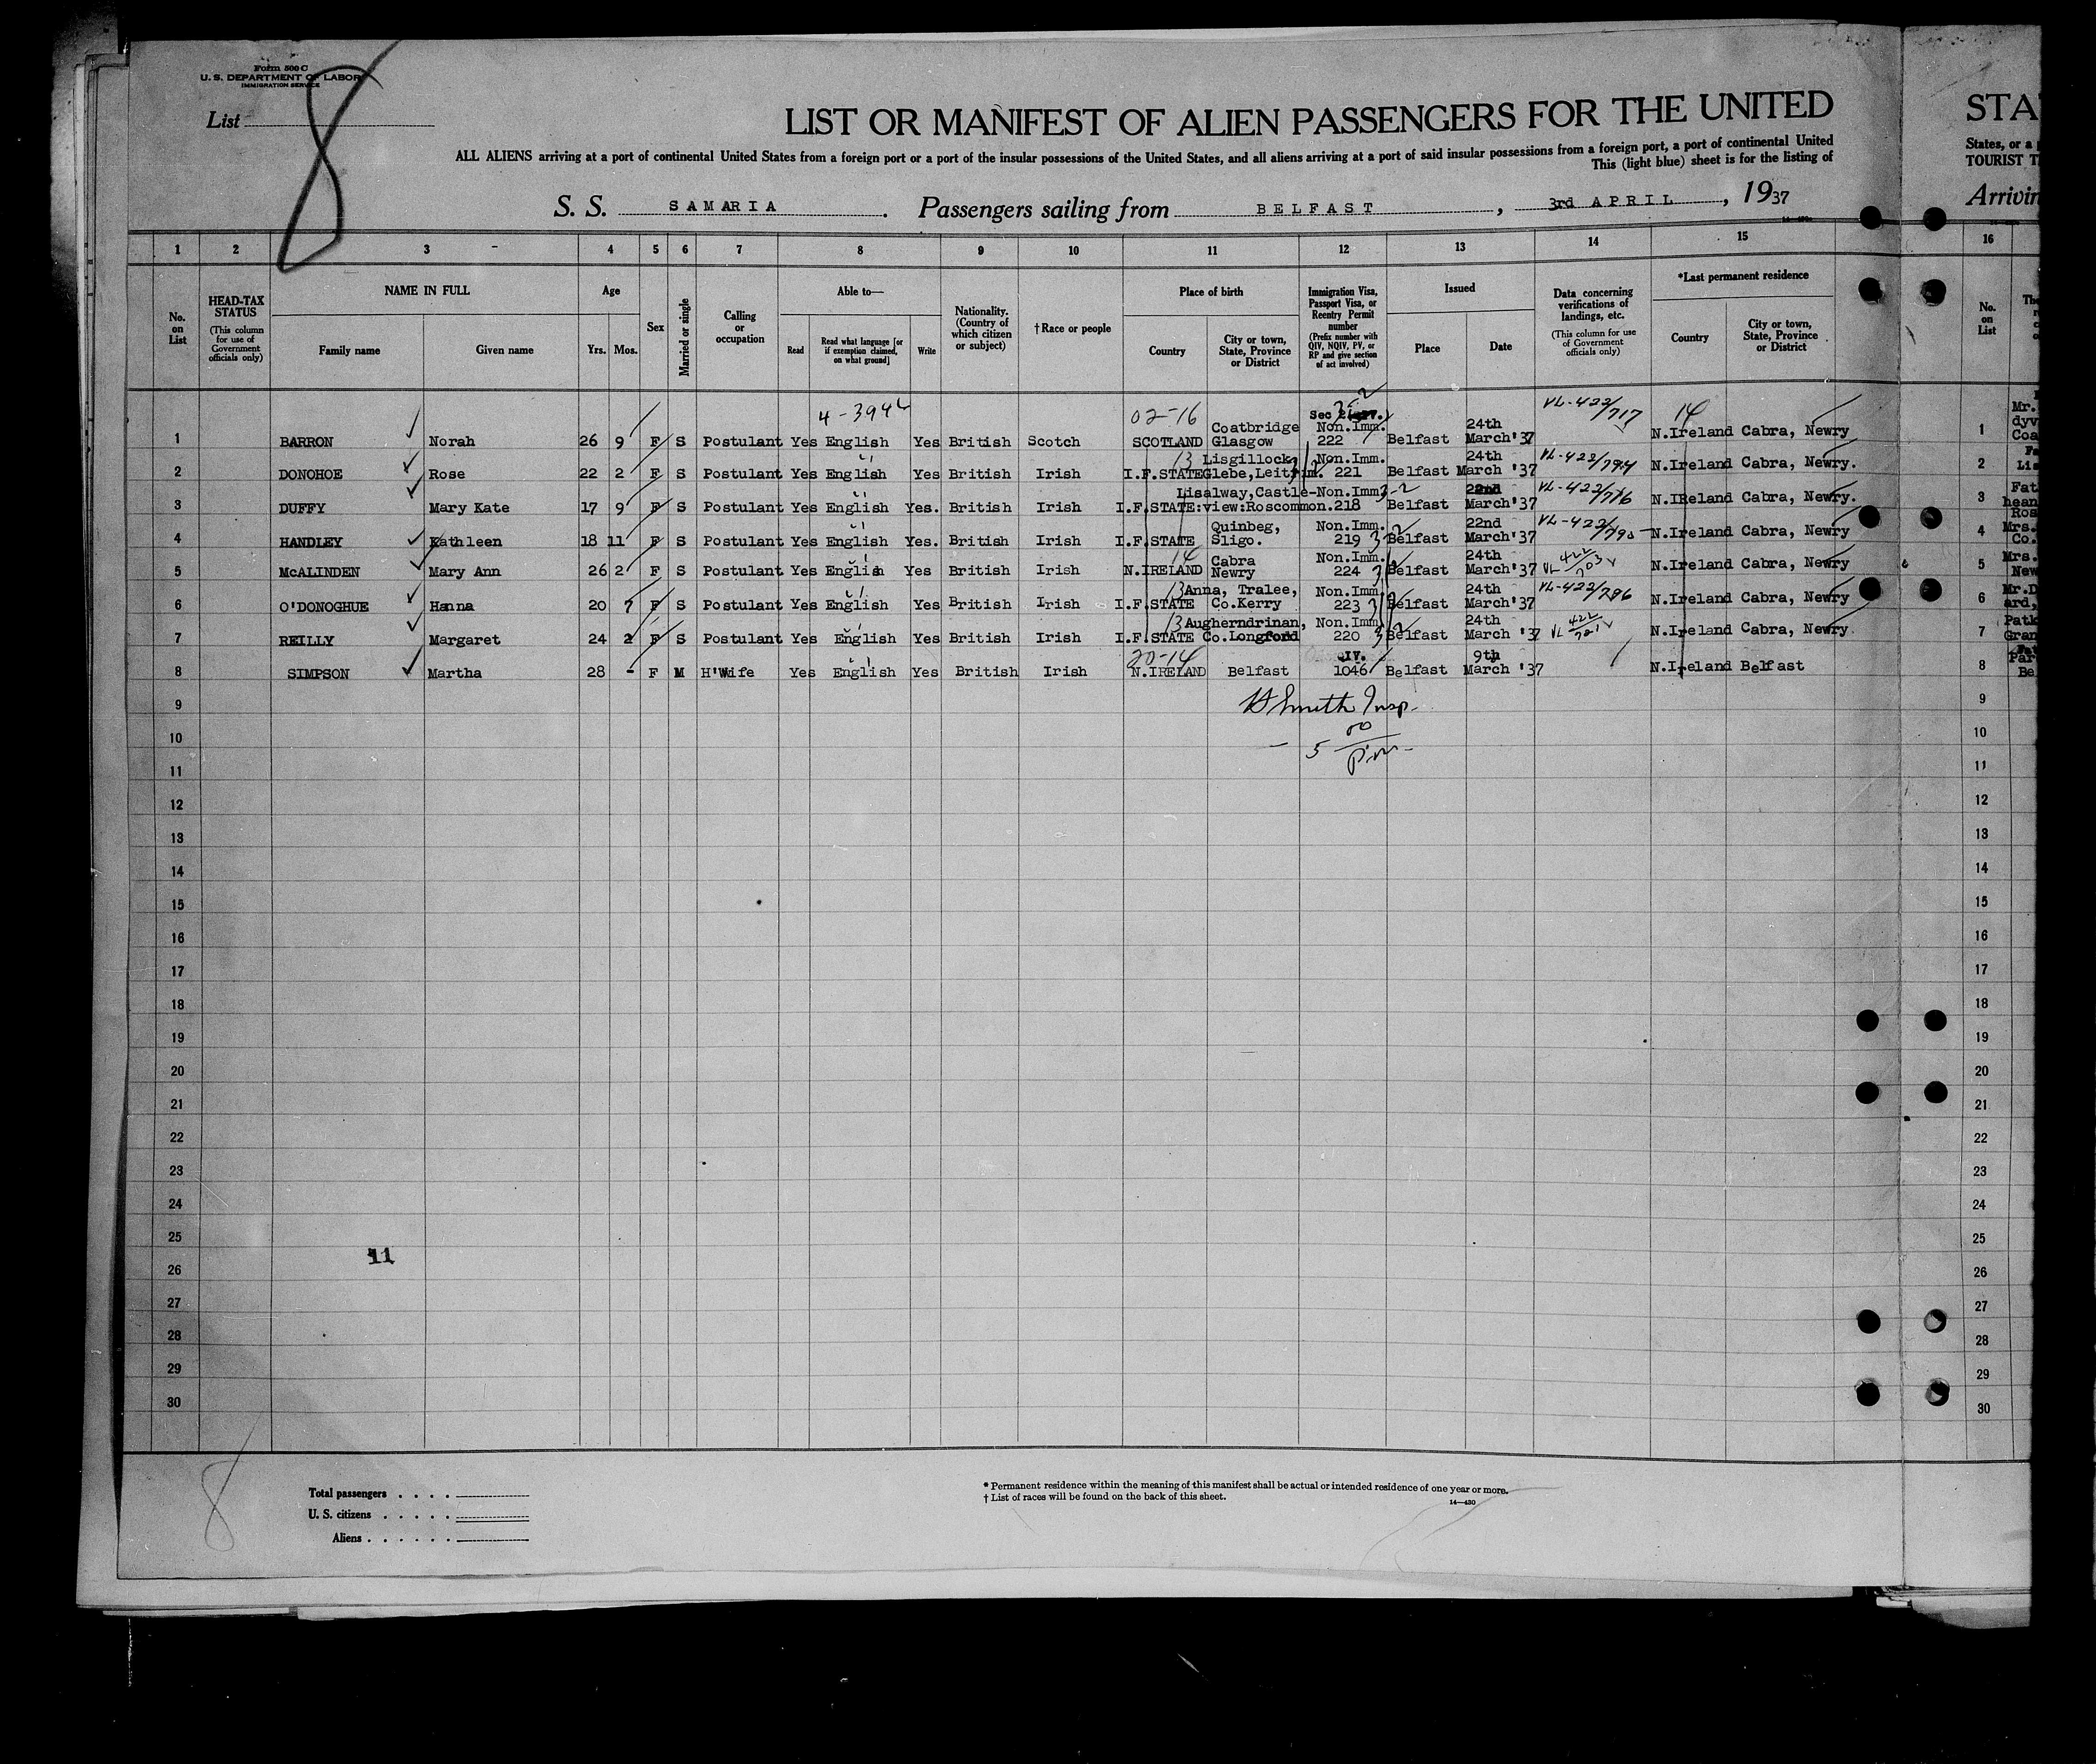 Form 500 C
U. S. DEPARTMENT OF LABOR
IMMIGRATION SERVICE
List
8
LIST OR MANIFEST OF ALIEN PASSENGERS FOR THE UNITED
ALL ALIENS arriving at a port of continental United States from a foreign port or a port of the insular possessions of the United States, and all aliens arriving at a port of said insular possessions from a foreign port, a port of continental United
This (light blue) sheet is for the listing of
S. S. SAMARIA. Passengers sailing from BELFAST, 3rd APRIL, 1937
STA
States, or a
TOURIST T
Arrivin
1 2 3 4 5 6 7 8 9 10 11 12 13 14 15 16
HEAD-TAX STATUS
(This column for use of Government officials only)
No. on List
NAME IN FULL
Family name Given name
Age
Yrs. Mos.
Sex
Married or single
Calling or occupation
Able to—
Read
Read what language [or if exemption claimed, on what ground]
Write
Nationality. (Country of which citizen or subject)
† Race or people
Place of birth
Country
City or town, State, Province or District
Immigration Visa, Passport Visa, or Reentry Permit number
(Prefix number with QIV, NQIV, PV, or RP and give section of act involved)
Issued
Place Date
Data concerning verifications of landings, etc.
(This column for use of Government officials only)
*Last permanent residence
Country
City or town, State, Province or District
No. on List
4-394 02-16 3-2 VL-422/717 14
1 BARRON Norah 26 9 F S Postulant Yes English Yes British Scotch SCOTLAND Coatbridge Glasgow Non.Imm. 222 Belfast 24th March'37 N.Ireland Cabra, Newry
2 DONOHOE Rose 22 2 F S Postulant Yes English Yes British Irish I.F.STATE Lisgillock Glebe,Leitrim. Non.Imm. 221 Belfast 24th March '37 N.Ireland Cabra, Newry.
3 DUFFY Mary Kate 17 9 F S Postulant Yes English Yes. British Irish I.F.STATE Lisalway,Castle-view:Roscommon. Non.Imm 218 Belfast 22nd March'37 VL-422/716 N.IReland Cabra, Newry.
4 HANDLEY Kathleen 18 11 F S Postulant Yes English Yes. British Irish I.F.STATE Quinbeg, Sligo. Non.Imm. 219 Belfast 22nd March'37 N.Ireland Cabra, Newry
5 McALINDEN Mary Ann 26 2 F S Postulant Yes English Yes British Irish 14 N.IRELAND Cabra Newry Non.Imm. 224 Belfast 24th March'37 N.Ireland Cabra, Newry
6 O'DONOGHUE Hanna 20 7 F S Postulant Yes English Yes British Irish 13 I.F.STATE Anna, Tralee, Co.Kerry Non.Imm. 223 Belfast 24th March'37 N.Ireland Cabra, Newry
7 REILLY Margaret 24 2 F S Postulant Yes English Yes British Irish 13 I.F.STATE Augherndrinan, Co.Longford Non.Imm. 220 Belfast 24th March '37 N.Ireland Cabra, Newry
8 SIMPSON Martha 28 - F M H'Wife Yes English Yes British Irish 20-14 N.IRELAND Belfast IV. 1046 Belfast 9th March '37 N.Ireland Belfast
Smith Insp.
5 00
Pm
9
10
11
12
13
14
15
16
17
18
19
20
21
22
23
24
25
26
27
28
29
30
11
8
Total passengers
U. S. citizens
Aliens
* Permanent residence within the meaning of this manifest shall be actual or intended residence of one year or more.
† List of races will be found on the back of this sheet.
14—430